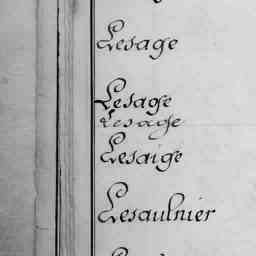 Lesage
Lesage
Lesage
Lesaige
Lesaulnier